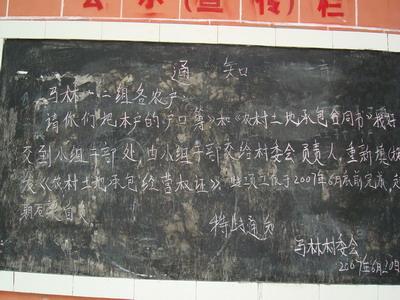 公示(宣传)栏
通知
马林一、二组各农户
请你们把本户的《户口簿》和《农村土地承包合同书》找好
交到小组干部处,由小组干部交给村委会负责人,重新填发
发《农村土地承包经营权证》此项工作于2007年6月底前完成,
期后果自负
特此通知
马林村委会
2007年6月20日